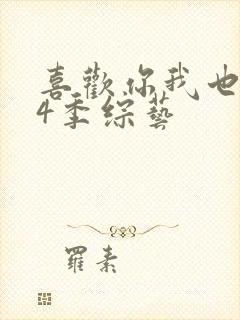 喜歡你我也
4季綜藝
羅素